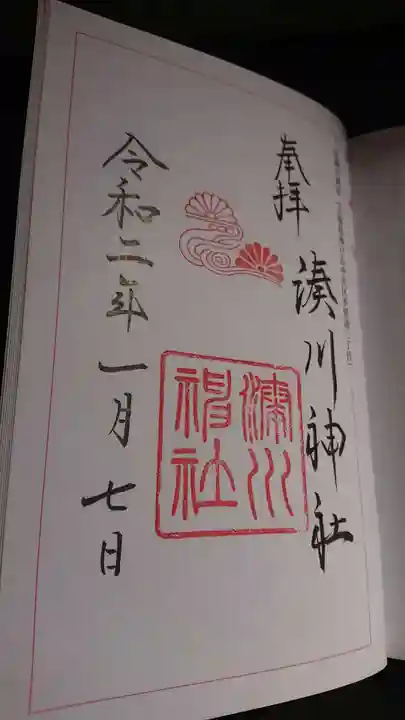 奉拝
湊川神社
湊川
神社
令和二年一月七日